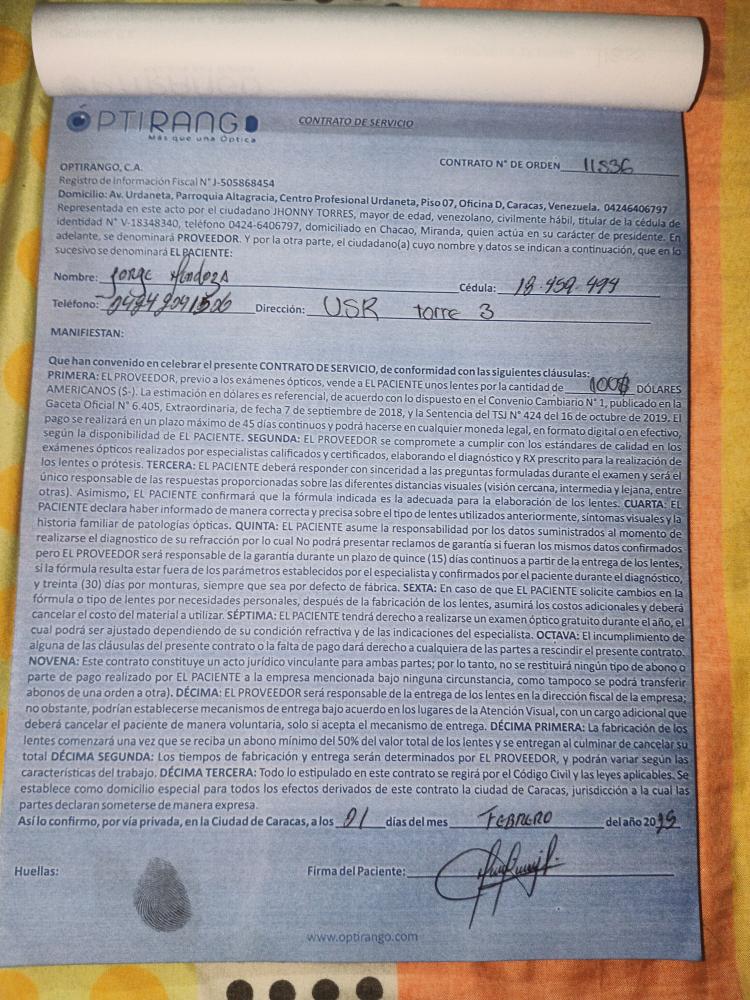 ÓPTIRANGO
Más que una Óptica
CONTRATO DE SERVICIO
CONTRATO N° DE ORDEN 11536
OPTIRANGO, C.A.
Registro de Información Fiscal N° J-505868454
Domicilio: Av. Urdaneta, Parroquia Altagracia, Centro Profesional Urdaneta, Piso 07, Oficina D, Caracas, Venezuela. 04246406797
Representada en este acto por el ciudadano JHONNY TORRES, mayor de edad, venezolano, civilmente hábil, titular de la cédula de
identidad N° V-18348340, teléfono 0424-6406797, domiciliado en Chacao, Miranda, quien actúa en su carácter de presidente. En
adelante, se denominará PROVEEDOR. Y por la otra parte, el ciudadano(a) cuyo nombre y datos se indican a continuación, que en lo
sucesivo se denominará EL PACIENTE:
Nombre: Jorge Mendoza Cédula: 18.459.499
Teléfono: Dirección: USR torre 3
MANIFIESTAN:
Que han convenido en celebrar el presente CONTRATO DE SERVICIO, de conformidad con las siguientes cláusulas:
PRIMERA: EL PROVEEDOR, previo a los exámenes ópticos, vende a EL PACIENTE unos lentes por la cantidad de 100$ DÓLARES
AMERICANOS ($-). La estimación en dólares es referencial, de acuerdo con lo dispuesto en el Convenio Cambiario N° 1, publicado en la
Gaceta Oficial N° 6.405, Extraordinaria, de fecha 7 de septiembre de 2018, y la Sentencia del TSJ N° 424 del 16 de octubre de 2019. El
pago se realizará en un plazo máximo de 45 días continuos y podrá hacerse en cualquier moneda legal, en formato digital o en efectivo,
según la disponibilidad de EL PACIENTE. SEGUNDA: EL PROVEEDOR se compromete a cumplir con los estándares de calidad en los
exámenes ópticos realizados por especialistas calificados y certificados, elaborando el diagnóstico y RX prescrito para la realización de
los lentes o prótesis. TERCERA: EL PACIENTE deberá responder con sinceridad a las preguntas formuladas durante el examen y será el
único responsable de las respuestas proporcionadas sobre las diferentes distancias visuales (visión cercana, intermedia y lejana, entre
otras). Asimismo, EL PACIENTE confirmará que la fórmula indicada es la adecuada para la elaboración de los lentes. CUARTA: EL
PACIENTE declara haber informado de manera correcta y precisa sobre el tipo de lentes utilizados anteriormente, síntomas visuales y la
historia familiar de patologías ópticas. QUINTA: EL PACIENTE asume la responsabilidad por los datos suministrados al momento de
realizarse el diagnostico de su refracción por lo cual No podrá presentar reclamos de garantía si fueran los mismos datos confirmados
pero EL PROVEEDOR será responsable de la garantía durante un plazo de quince (15) días continuos a partir de la entrega de los lentes,
si la fórmula resulta estar fuera de los parámetros establecidos por el especialista y confirmados por el paciente durante el diagnóstico,
y treinta (30) días por monturas, siempre que sea por defecto de fábrica. SEXTA: En caso de que EL PACIENTE solicite cambios en la
fórmula o tipo de lentes por necesidades personales, después de la fabricación de los lentes, asumirá los costos adicionales y deberá
cancelar el costo del material a utilizar. SÉPTIMA: EL PACIENTE tendrá derecho a realizarse un examen óptico gratuito durante el año, el
cual podrá ser ajustado dependiendo de su condición refractiva y de las indicaciones del especialista. OCTAVA: El incumplimiento de
alguna de las cláusulas del presente contrato o la falta de pago dará derecho a cualquiera de las partes a rescindir el presente contrato.
NOVENA: Este contrato constituye un acto jurídico vinculante para ambas partes; por lo tanto, no se restituirá ningún tipo de abono o
parte de pago realizado por EL PACIENTE a la empresa mencionada bajo ninguna circunstancia, como tampoco se podrá transferir
abonos de una orden a otra). DÉCIMA: EL PROVEEDOR será responsable de la entrega de los lentes en la dirección fiscal de la empresa;
no obstante, podrían establecerse mecanismos de entrega bajo acuerdo en los lugares de la Atención Visual, con un cargo adicional que
deberá cancelar el paciente de manera voluntaria, solo si acepta el mecanismo de entrega. DÉCIMA PRIMERA: La fabricación de los
lentes comenzará una vez que se reciba un abono mínimo del 50% del valor total de los lentes y se entregan al culminar de cancelar su
total DÉCIMA SEGUNDA: Los tiempos de fabricación y entrega serán determinados por EL PROVEEDOR, y podrán variar según las
características del trabajo. DÉCIMA TERCERA: Todo lo estipulado en este contrato se regirá por el Código Civil y las leyes aplicables. Se
establece como domicilio especial para todos los efectos derivados de este contrato la ciudad de Caracas, jurisdicción a la cual las
partes declaran someterse de manera expresa.
Así lo confirmo, por vía privada, en la Ciudad de Caracas, a los 01 días del mes FEBRERO del año 20
Huellas: Firma del Paciente:
www.optirango.com